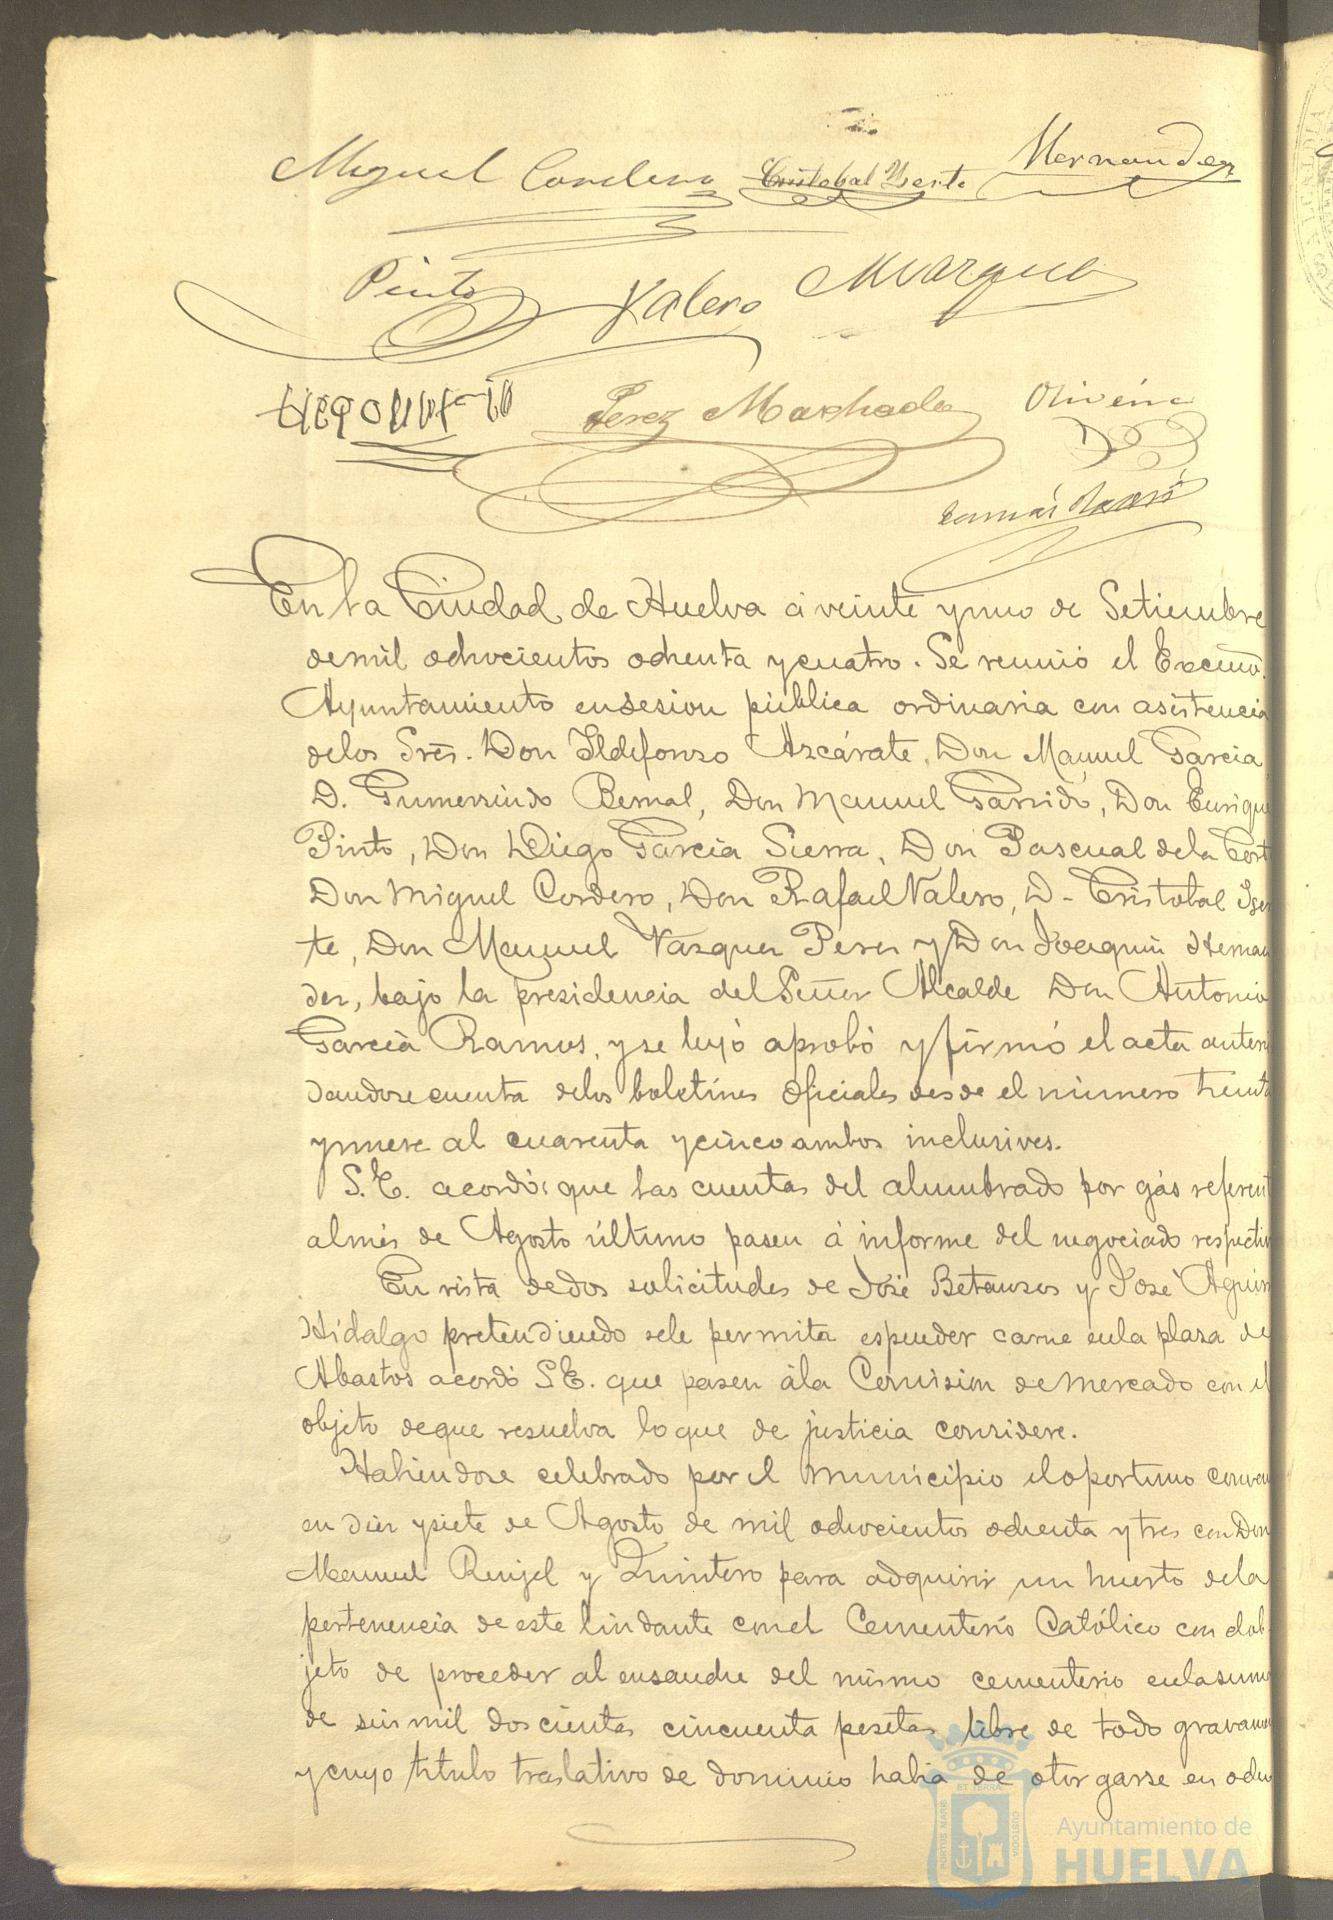 Miguel Cordero Cristobal Yserte Hernandez
Pinto Valero Marquez
Perez Machado Oliveira
Tomás
En la Ciudad de Huelva á veinte y uno de Setiembre
de mil ochocientos ochenta y cuatro. Se reunió el Excmo.
Ayuntamiento en sesion pública ordinaria con asistencia
de los Sres. Don Ildefonso Azcárate, Don Manuel Garcia
D. Gumersindo Bernal, Don Manuel Garrido, Don Enrique
Pinto, Don Diego Garcia Sierra, Don Pascual de la Cort
Don Miguel Cordero, Don Rafael Valero, D. Cristobal Yser
te, Don Manuel Vazquez Perez y Don Joaquin Hernan
dez, bajo la presidencia del Señor Alcalde Don Antonio
Garcia Ramos, y se leyó aprobó y firmó el acta anteri
dandose cuenta de los boletines oficiales desde el número treinta
y nueve al cuarenta y cinco ambos inclusives.
S. E. acordó: que las cuentas del alumbrado por gás referent
al mes de Agosto último pasen á informe del negociado respectiv
En vista de dos solicitudes de José Betanzos y José Aguirr
Hidalgo pretendiendo se le permita espender carne en la plaza de
Abastos acordó S. E. que pasen á la Comision de Mercado con el
objeto de que resuelva lo que de justicia considere.
Habiendose celebrado por el Municipio el oportuno conven
en diez y siete de Agosto de mil ochocientos ochenta y tres con Don
Manuel Renjel y Quintero para adquirir un huerto de la
pertenencia de este lindante con el Cementerio Católico con el ob
jeto de proceder al ensanche del mismo cementerio en la suma
de seis mil doscientas cincuenta pesetas libre de todo gravamen
y cuyo título traslativo de dominio habia de otorgarse en ocho
PORTUS MARIS ET TERRA CUSTODIA
Ayuntamiento de
HUELVA